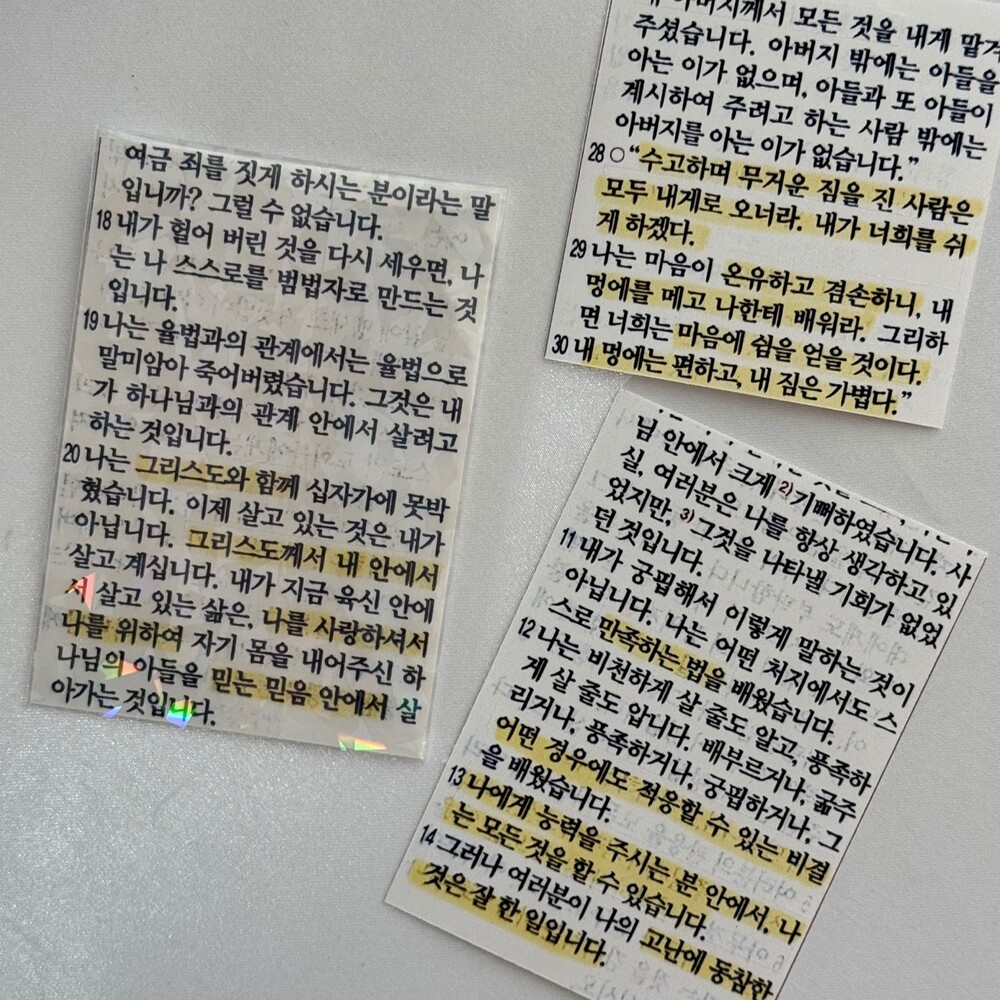 여금 죄를 짓게 하시는 분이라는 말
입니까? 그럴 수 없습니다.
18 내가 헐어 버린 것을 다시 세우면, 나
는 나 스스로를 범법자로 만드는 것
입니다.
19 나는 율법과의 관계에서는 율법으로
말미암아 죽어버렸습니다. 그것은 내
가 하나님과의 관계 안에서 살려고
하는 것입니다.
20 나는 그리스도와 함께 십자가에 못박
혔습니다. 이제 살고 있는 것은 내가
아닙니다. 그리스도께서 내 안에서
살고 계십니다. 내가 지금 육신 안에
서 살고 있는 삶은, 나를 사랑하셔서
나를 위하여 자기 몸을 내어주신 하
나님의 아들을 믿는 믿음 안에서 살
아가는 것입니다.
아버지께서 모든 것을 내게 맡겨
주셨습니다. 아버지 밖에는 아들을
아는 이가 없으며, 아들과 또 아들이
계시하여 주려고 하는 사람 밖에는
아버지를 아는 이가 없습니다.”
28 ○ “수고하며 무거운 짐을 진 사람은
모두 내게로 오너라. 내가 너희를 쉬
게 하겠다.
29 나는 마음이 온유하고 겸손하니, 내
멍에를 메고 나한테 배워라. 그리하
면 너희는 마음에 쉼을 얻을 것이다.
30 내 멍에는 편하고, 내 짐은 가볍다.”
님 안에서 크게 2)기뻐하였습니다. 사
실, 여러분은 나를 항상 생각하고 있
었지만, 3)그것을 나타낼 기회가 없었
던 것입니다.
11 내가 궁핍해서 이렇게 말하는 것이
아닙니다. 나는 어떤 처지에서도 스
스로 만족하는 법을 배웠습니다.
12 나는 비천하게 살 줄도 알고, 풍족하
게 살 줄도 압니다. 배부르거나, 굶주
리거나, 풍족하거나, 궁핍하거나, 그
어떤 경우에도 적응할 수 있는 비결
을 배웠습니다.
13 나에게 능력을 주시는 분 안에서, 나
는 모든 것을 할 수 있습니다.
14 그러나 여러분이 나의 고난에 동참한
것은 잘 한 일입니다.